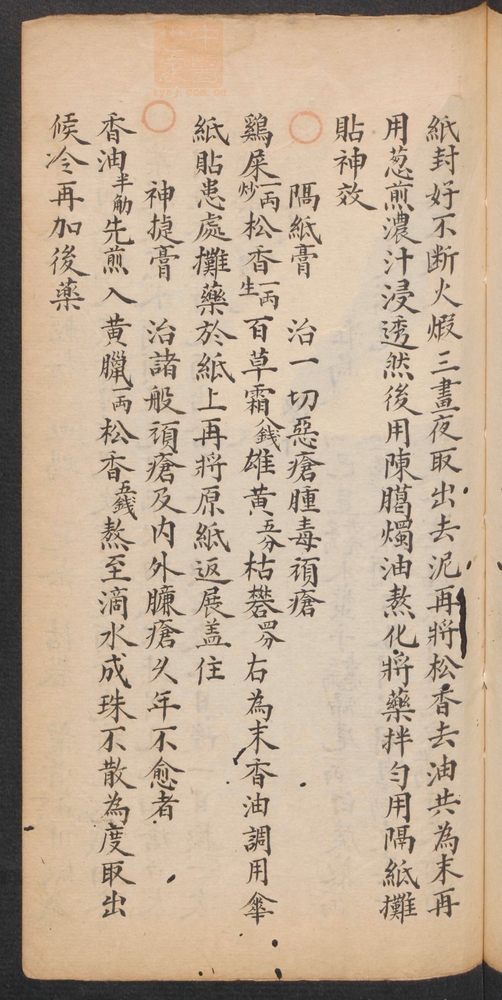 紙封好不断火煆三晝夜取出去泥再將松香去油共為末再
用葱煎濃汁浸透然後用陳臈燭油熬化將藥拌勻用隔紙攤
貼神效
隔紙膏　治一切惡瘡腫毒頑瘡
鷄屎一两炒松香一两生百草霜八錢雄黃五分枯礬四分右為末香油調用傘
紙貼患處攤藥於紙上再將原紙返展盖住
神捷膏　治諸般頑瘡及內外臁瘡久年不愈者
香油半觔先煎入黃臘一两松香五錢熬至滴水成珠不散為度取出
候冷再加後藥